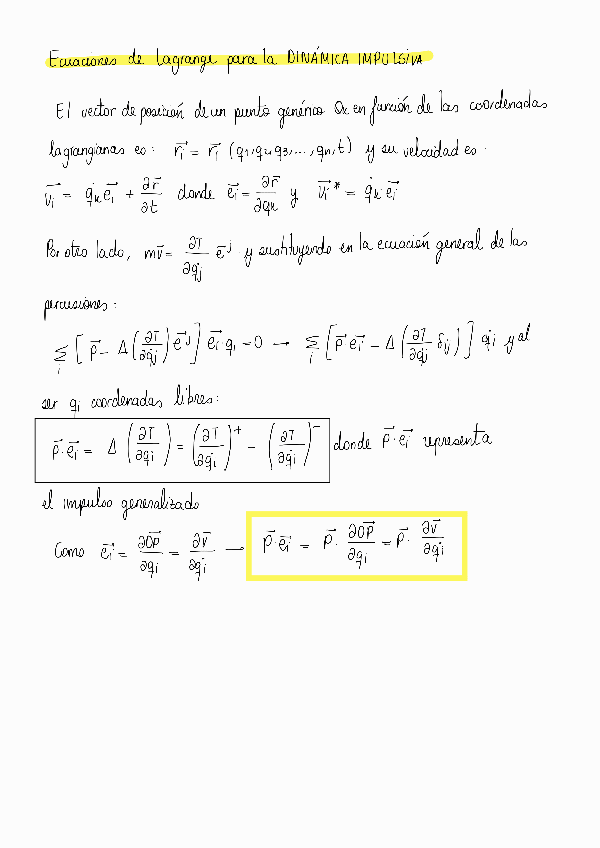 Ecuaciones de Lagrange para la DINÁMICA IMPULSIVA
El vector de posición de un punto genérico Oi en función de las coordenadas
lagrangianas es: r⃗i = r⃗i (q1, q2, q3, ..., qn, t) y su velocidad es:
v⃗i = q̇k e⃗i + ∂r⃗/∂t donde e⃗i = ∂r⃗/∂qk y v⃗i* = q̇k e⃗i
Por otro lado, mv⃗ = ∂T/∂q̇j e⃗^j y sustituyendo en la ecuación general de las
percusiones:
Σi [p⃗ - Δ(∂T/∂q̇j) e⃗^j] e⃗i · qi = 0 → Σi [p⃗ e⃗i - Δ(∂T/∂q̇j δij)] q̇i y al
ser qi coordenadas libres:
p⃗ · e⃗i = Δ(∂T/∂q̇i) = (∂T/∂q̇i)⁺ - (∂T/∂q̇i)⁻ donde p⃗ · e⃗i representa
el impulso generalizado
Como e⃗i = ∂OP⃗/∂qi = ∂v⃗/∂q̇i → p⃗ · e⃗i = p⃗ · ∂OP⃗/∂qi = p⃗ · ∂v⃗/∂q̇i